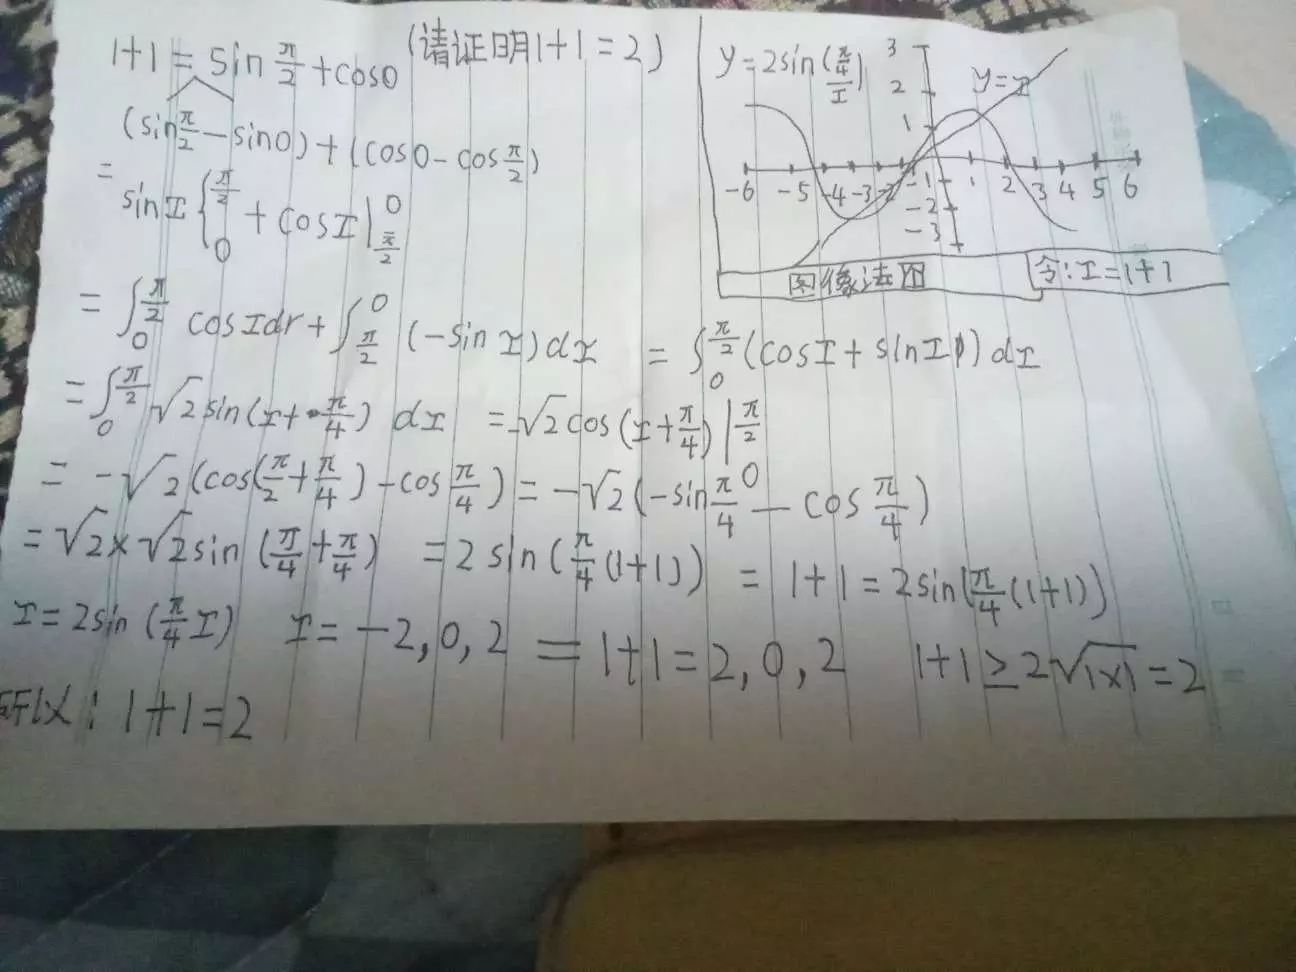 1+1=sin π/2 +cos0 (请证明1+1=2)
(sin π/2 -sin0)+(cos0-cos π/2)
= sinx {π/2 0 + cosx| 0 π/2
= ∫ π/2 0 cosxdr+∫ 0 π/2 (-sinx)dx = ∫ π/2 0 (cosx+sinx)dx
= ∫ π/2 0 √2sin(x+π/4) dx =-√2cos(x+π/4)| π/2 0
= -√2(cos(π/2+π/4)-cos π/4)=-√2(-sin π/4 -cos π/4)
=√2×√2sin(π/4+π/4) =2sin(π/4(1+1)) = 1+1=2sin(π/4(1+1))
x=2sin(π/4 x) x=-2,0,2 = 1+1=2,0,2 1+1≥2√1×1=2
所以:1+1=2
y=2sin(π/4/x)
y=x
3
2
1
-6 -5 -4 -3 -2 -1 1 2 3 4 5 6
-2
-3
图像法图
令:x=1+1